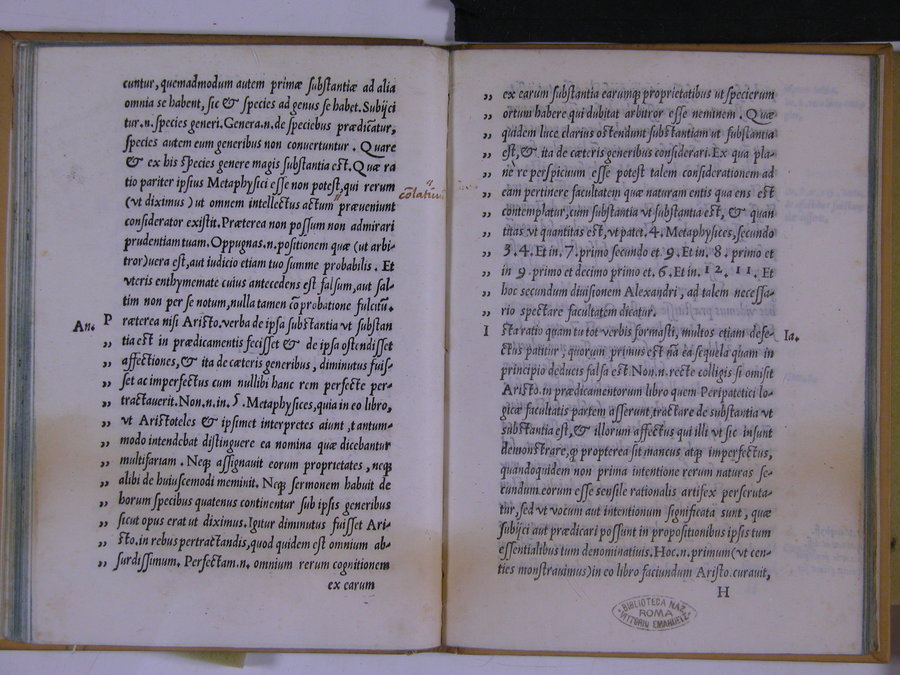 cuntur, quemadmodum autem primæ substantiæ ad alia
omnia se habent, sic & species ad genus se habet. Subijci
tur .n. species generi. Genera .n. de speciebus prædicātur,
species autem eum generibus non conuertuntur. Quare
& ex bis species genere magis substantia est. Quæ ra
tio pariter ipsius Metaphysici esse non potest, qui rerum
(vt diximus) ut omnem intellectus actum præueniunt
considerator existit. Præterea non possum non admirari
prudentiam tuam. Oppugnas .n. positionem quæ (ut arbi-
tror) uera est, aut iudicio etiam tuo summe probabilis. Et
vteris enthymemate cuius antecedens est falsum, aut sal-
tim non per se notum, nulla tamen cōprobatione fulcitū.
An. Præterea nisi Aristo. verba de ipsa substantia vt substan
„ tia est in prædicamentis fecisset & de ipsa ostendisset
„ affectiones, & ita de cæteris generibus, diminutus fuis-
„ set ac imperfectus cum nullibi hanc rem perfecte per-
„ tractauerit. Non .n. in. 5. Metaphysices, quia in eo libro,
„ vt Aristoteles & ipsimet interpretes aiunt, tantum-
„ modo intendebat distinguere ea nomina quæ dicebantur
„ multifariam. Neq; assignauit eorum proprietates, neq;
„ alibi de huiuscemodi meminit. Neq; sermonem habuit de
„ horum specibus quatenus continentur sub ipsis generibus
„ sicut opus erat ut diximus. Igitur diminutus fuisset Ari-
„ sto. in rebus pertractandis, quod quidem est omnium ab-
„ surdissimum. Perfectam .n. omnium rerum cognitionem
ex earum
„ ex earum substantia earumq; proprietatibus ut specierum
„ ortum habere qui dubitat arbitror esse neminem. Quæ
„ quidem luce clarius ostendunt substantiam ut substantia
„ est, & ita de cæteris generibus considerari. Ex qua pla-
„ ne re perspicuum esse potest talem considerationem ad
„ eam pertinere facultatem quæ naturam entis qua ens est
„ contemplatur, cum substantia vt substantia est, & quan
„ titas vt quantitas est, vt patet. 4. Metaphysices, secundo
„ 3. 4. Et in. 7. primo secundo et 9. Et in. 8. primo et
„ in 9. primo et decimo primo et. 6. Et in. 12. 11. Et
„ hoc secundum diuisionem Alexandri, ad talem necessa-
„ rio spectare facultatem dicatur.
Ista ratio quam tu tot verbis formasti, multos etiam defe- Ia.
ctus patitur, quorum primus est nā ea sequela quam in
principio deducis falsa est Non .n. recte colligis si omisit
Aristo. in prædicamentorum libro quem Peripatetici lo-
gicæ facultatis partem asserunt, tractare de substantia vt
substantia est, & illorum affectus qui illi vt sic insunt
demonstrare, q̃ propterea sit mancus atq; imperfectus,
quandoquidem non prima intentione rerum naturas se-
cundum eorum esse sensile rationalis artifex perscruta-
tur, sed vt vocum aut intentionum significata sunt, quæ
subijci aut prædicari possunt in propositionibus ipsis tum
essentialibus tum denominatiuis. Hoc .n. primum (vt cen-
ties monstrauimus) in eo libro faciundum Aristo. curauit,
H
BIBLIOTECA NAZ.
ROMA
VITTORIO EMANUELE